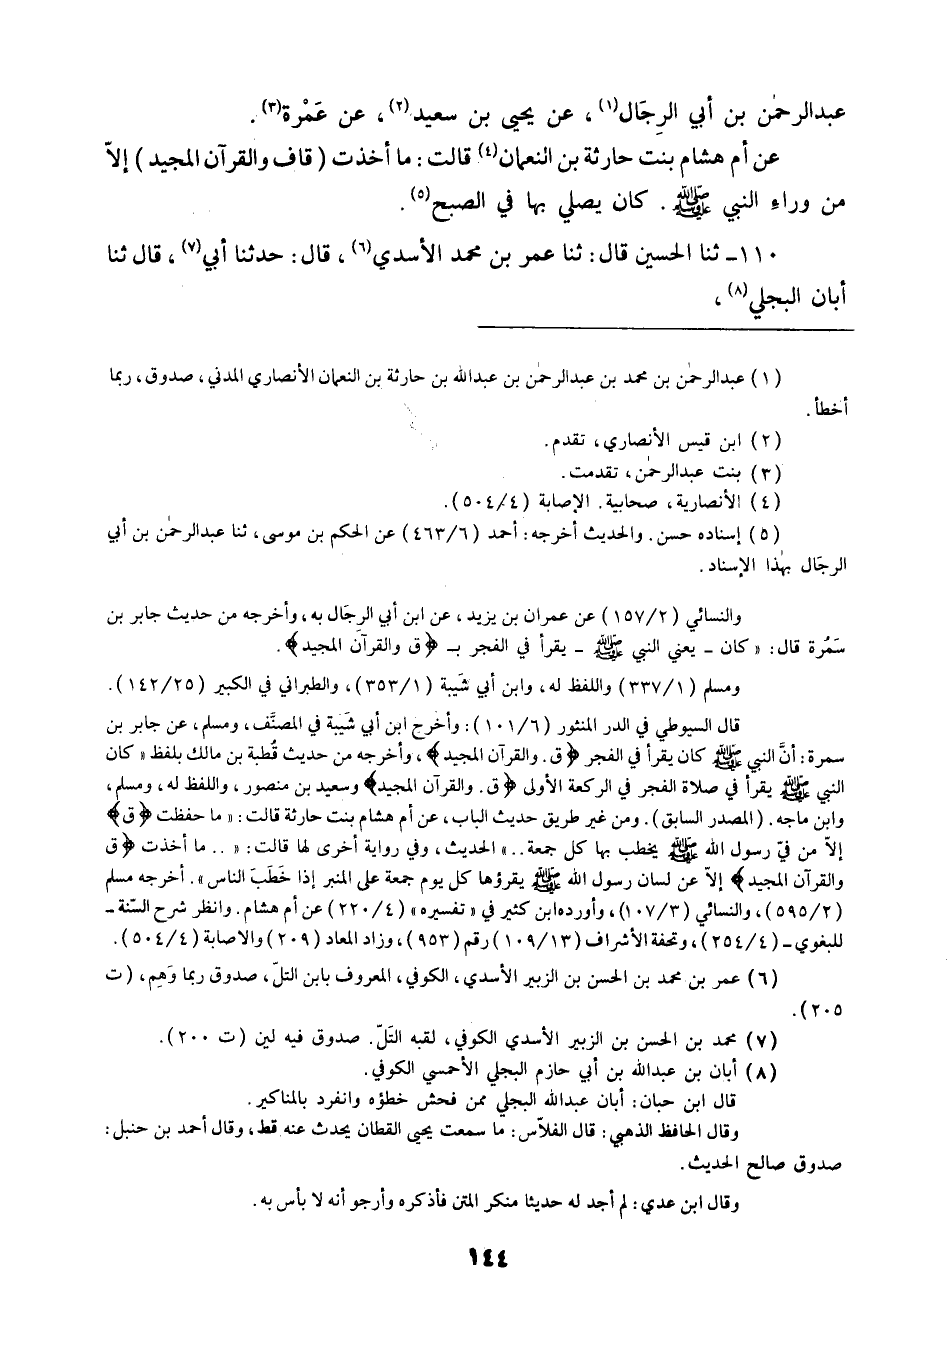 عبدالرحمٰن بن أبي الرِجَال(١)، عن يحيى بن سعيد(٢)، عن عَمْرة(٣).
عن أم هشام بنت حارثة بن النعمان(٤) قالت: ما أخذت ( قاف والقرآن المجيد ) إلاّ
من وراء النبي ﷺ. كان يصلي بها في الصبح(٥).
١١٠ـ ثنا الحسين قال: ثنا عمر بن محمد الأسدي(٦)، قال: حدثنا أبي(٧)، قال ثنا
أبان البجلي(٨)،
(١) عبدالرحمٰن بن محمد بن عبدالرحمٰن بن عبدالله بن حارثة بن النعمان الأنصاري المدني، صدوق، ربما
أخطأ.
(٢) ابن قيس الأنصاري، تقدم.
(٣) بنت عبدالرحمٰن، تقدمت.
(٤) الأنصارية، صحابية. الإصابة (٥٠٤/٤).
(٥) إسناده حسن. والحديث أخرجه: أحمد (٤٦٣/٦) عن الحكم بن موسى، ثنا عبدالرحمٰن بن أبي
الرجَال بهٰذا الإسناد.
والنسائي (١٥٧/٢) عن عمران بن يزيد، عن ابن أبي الرِجَال به، وأخرجه من حديث جابر بن
سَمُرة قال: « كان ـ يعني النبي ﷺ ـ يقرأ في الفجر بـ ﴿ق والقرآن المجيد﴾.
ومسلم (٣٣٧/١) واللفظ له، وابن أبي شَيبة (٣٥٣/١)، والطبراني في الكبير (١٤٢/٢٥).
قال السيوطي في الدر المنثور (١٠١/٦): وأخرج ابن أبي شَيبة في المصنَّف، ومسلم، عن جابر بن
سمرة: أنَّ النبي ﷺ كان يقرأ في الفجر ﴿ق. والقرآن المجيد﴾، وأخرجه من حديث قُطبة بن مالك بلفظ « كان
النبي ﷺ يقرأ في صلاة الفجر في الركعة الأولى ﴿ق. والقرآن المجيد﴾ وسعيد بن منصور، واللفظ له، ومسلم،
وابن ماجه. (المصدر السابق). ومن غير طريق حديث الباب، عن أم هشام بنت حارثة قالت: « ما حفظت ﴿ق﴾
إلاّ من فيّ رسول الله ﷺ يخطب بها كل جمعة..» الحديث، وفي رواية أخرى لها قالت: « .. ما أخذت ﴿ق
والقرآن المجيد﴾ إلاّ عن لسان رسول الله ﷺ يقرؤها كل يوم جمعة على المنبر إذا خَطَبَ الناس». أخرجه مسلم
(٥٩٥/٢)، والنسائي (١٠٧/٣)، وأورده ابن كثير في « تفسيره» (٢٢٠/٤) عن أم هشام. وانظر شرح السّنة ـ
للبغوي ـ (٢٥٤/٤)، وتحفة الأشراف (١٠٩/١٣) رقم (٩٥٣)، وزاد المعاد (٢٠٩) والاصابة (٥٠٤/٤).
(٦) عمر بن محمد بن الحسن بن الزبير الأسدي، الكوفي، المعروف بابن التلّ، صدوق ربما وَهِم، (ت
٢٠٥).
(٧) محمد بن الحسن بن الزبير الأسدي الكوفي، لقبه التَلّ. صدوق فيه لين (ت ٢٠٠).
(٨) أبان بن عبدالله بن أبي حازم البجلي الأحمسي الكوفي.
قال ابن حبان: أبان عبدالله البجلي ممن فحش خطؤه وانفرد بالمناكير.
وقال الحافظ الذهبي: قال الفلاّس: ما سمعت يحيى القطان يحدث عنه قط، وقال أحمد بن حنبل:
صدوق صالح الحديث.
وقال ابن عدي: لم أجد له حديثا منكر المتن فأذكره وأرجو أنه لا بأس به.
١٤٤